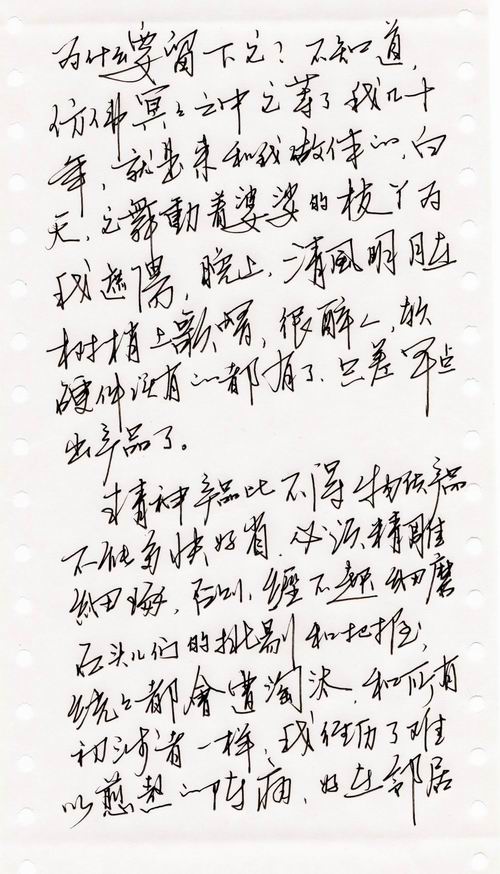 为什么要留下它？不知道，
仿佛冥冥之中它等了我几十
年，就是来和我做伴的，白
天，它舞動着婆娑的枝丫为
我遮陽，晚上，清風明月在
树梢上歌唱，很醉人，软
硬件没有的都有了，只差写点
出产品了。
精神产品比不得物质产品
不能多快好省，必须精雕
细琢，否则，经不起细磨
石头儿们的挑剔和把握，
统统都會遭淘汰，和所有
初涉者一样，我经历了难
以煎熬的阵痛，好在邻居